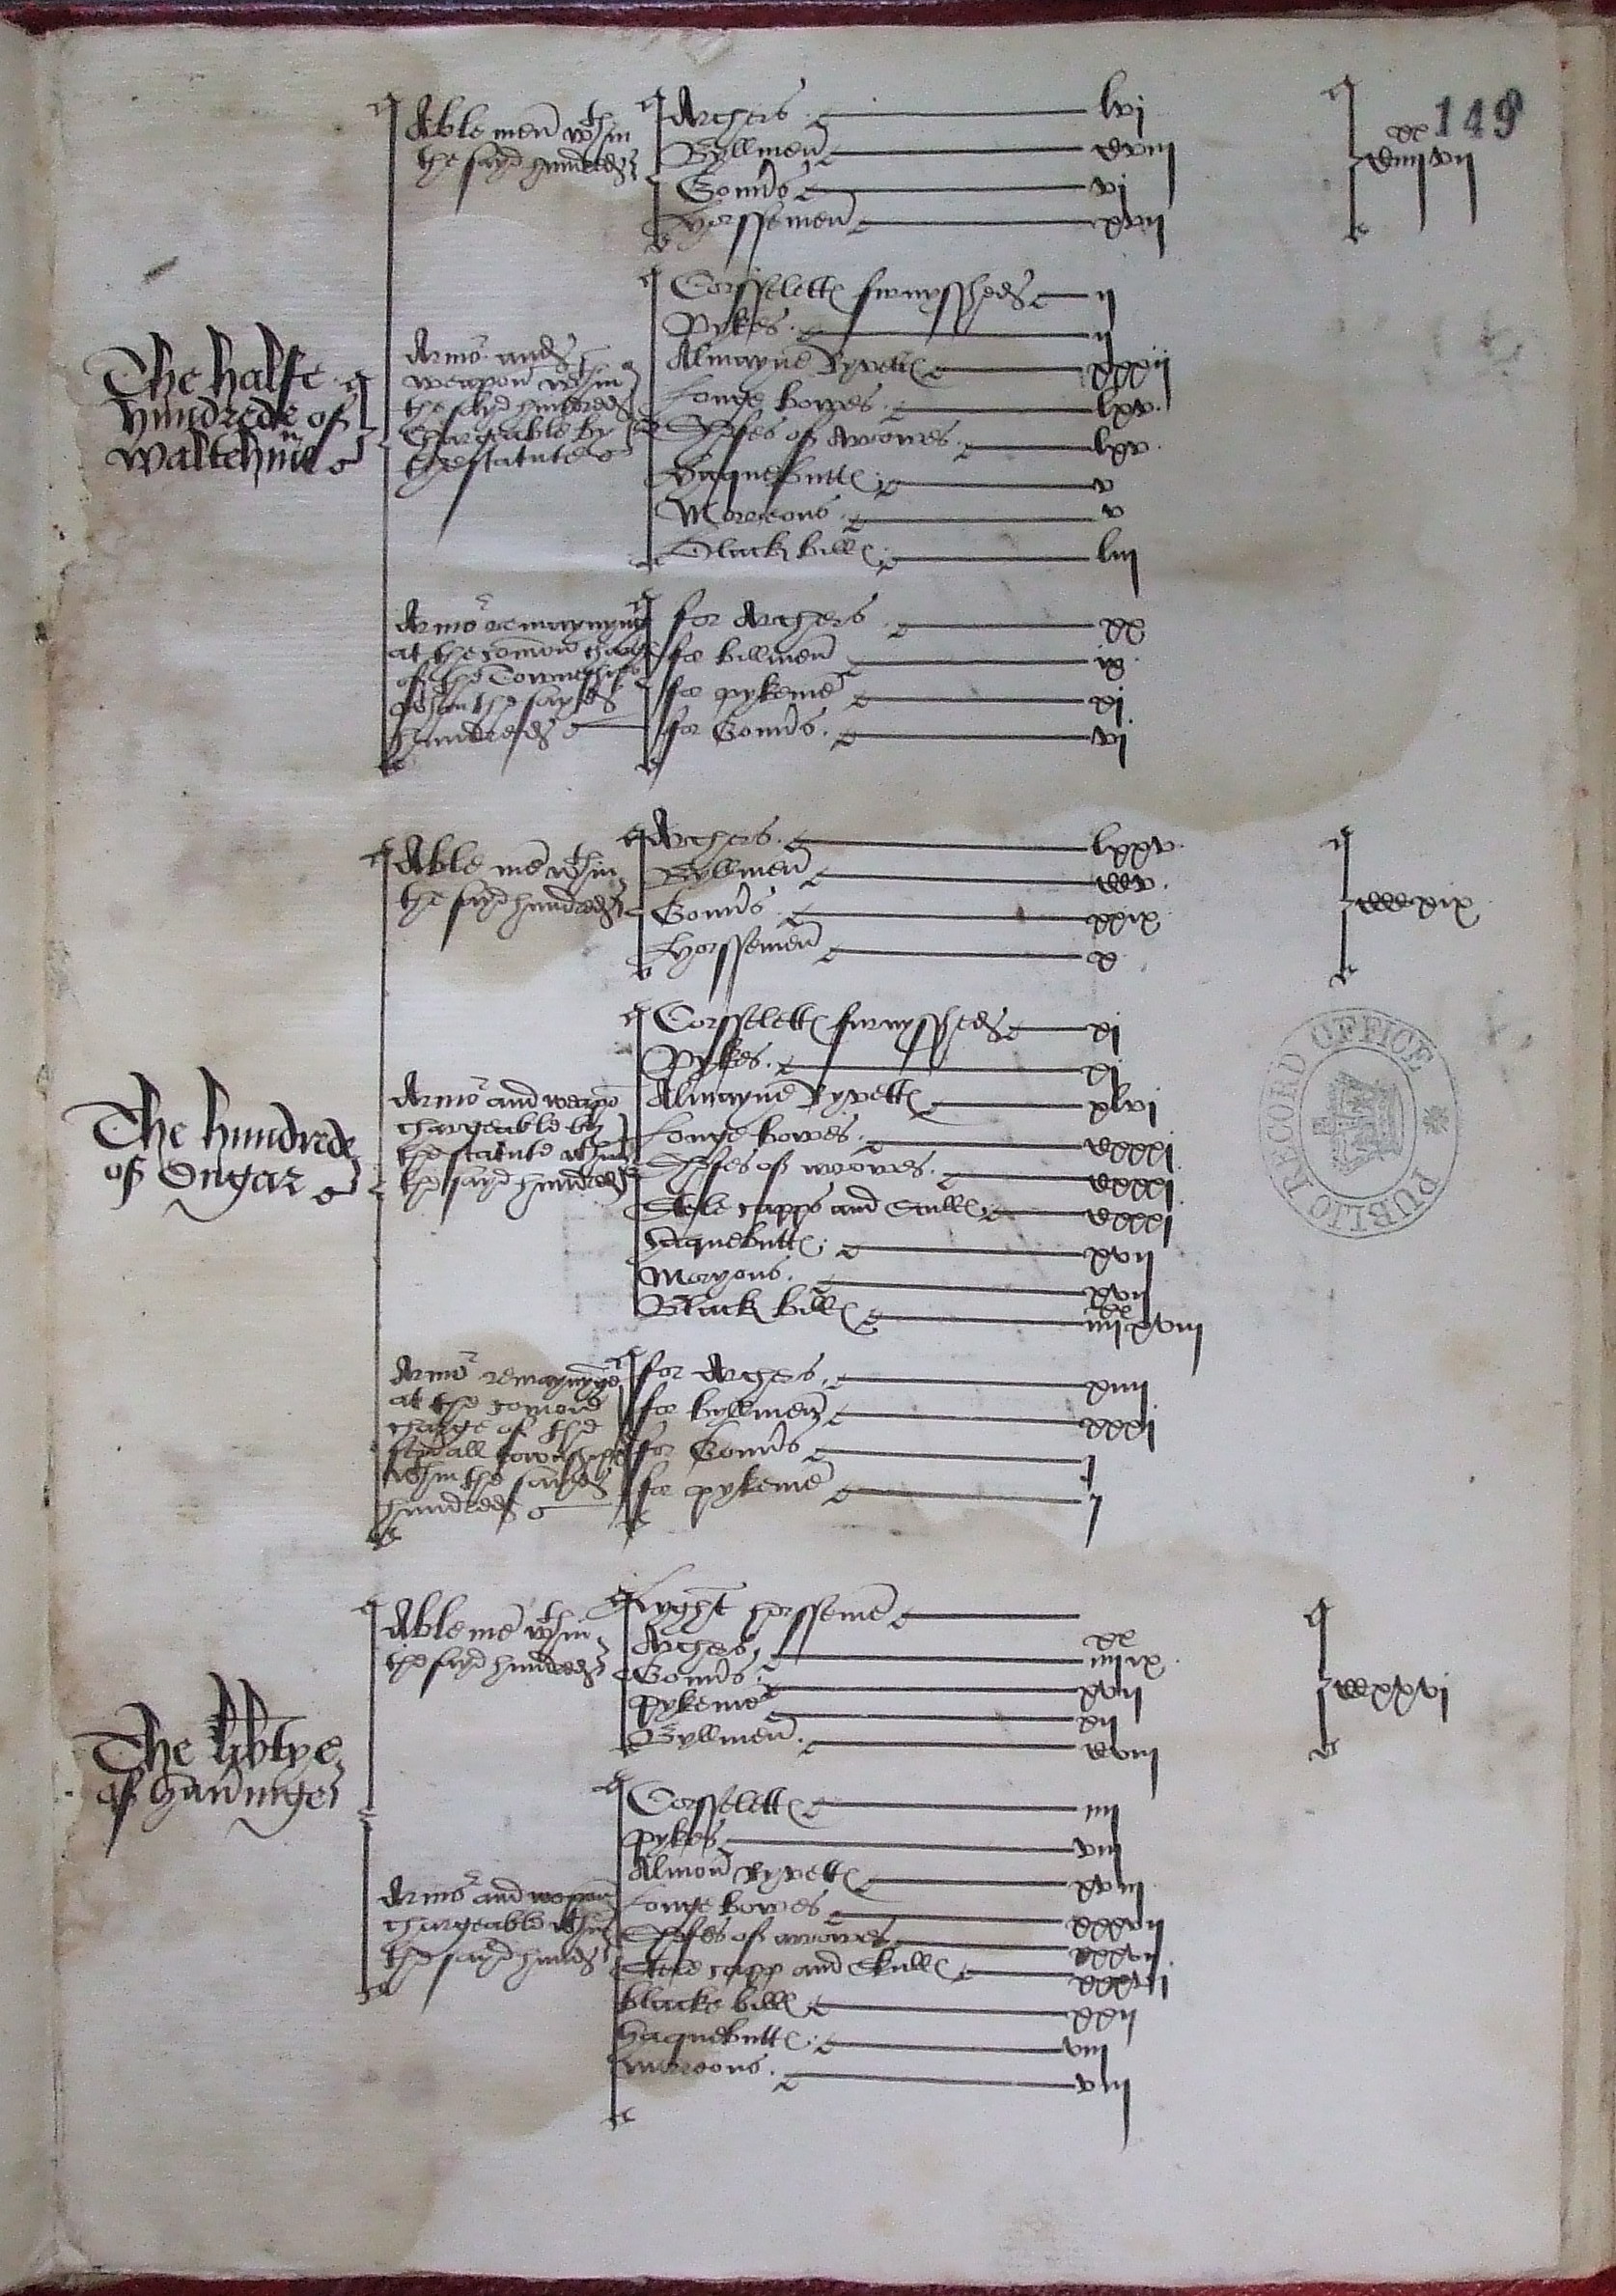 149
The halfe
hundrede of
Waltehm
Able men wthin
the sayd hundred
Archers lvj
Byllmen cviij
Gonners vj
Horssemen xvij
c iiij xx vij
Armor and
weapon wthin
the sayd hundred
chargeable by
the statute
Corsseletts furnysshed ij
Pykes ij
Almayne Ryvetts xxxij
Longe bowes lxv
Shefes of Arrowes lxv
Haquebutts v
Morreons v
Black bills liij
Armor remaynyng
at the comon charge
of the Towneshipps
wthin the sayd
hundred
for Archers xx
for billmen
for pykeme xj
for Gonners vj
The hundrede
of Ongar
Able me wthin
the sayd hundred
Archers lxxv
Byllmen ccv
Gonners xxix
Horssemen x
cccxix
Armor and weapo
chargeable by
the statute wthin
the sayd hundred
Corsseletts furnysshed xj
Pykes xj
Almayne Ryvetts xlvj
Longe bowes cxxxj
Shefes of arrowes cxxxj
Stele capps and Sculls cxxxj
Haquebutts xvij
Moryons xvij
Black bills iiij xx xviij
Armor remaynynge
at the comon
charge of the
sevall towshipps
wthin the sayd
hundred
for Archers xiiij
for byllmen xxxj
for Gonners j
for pykeme j
The libtye
of Haveringe
Able me wthin
the sayd hundred
Lyght horsseme
Archers iiij xx ix
Gonners xvij
pykeme xij
Byllmen cviij
ccxxvj
Armor and weapon
chargeable wthin
the sayd hundred
Corsseletts iiij
pykes viij
Almon Ryvetts xviij
Longe bowes xxxvij
Shefes of arrowes xxxvij
Stele capp and Skulls xxxvij
blacke bills xxij
Haquebutts viij
morreons viij
PUBLIC RECORD OFFICE